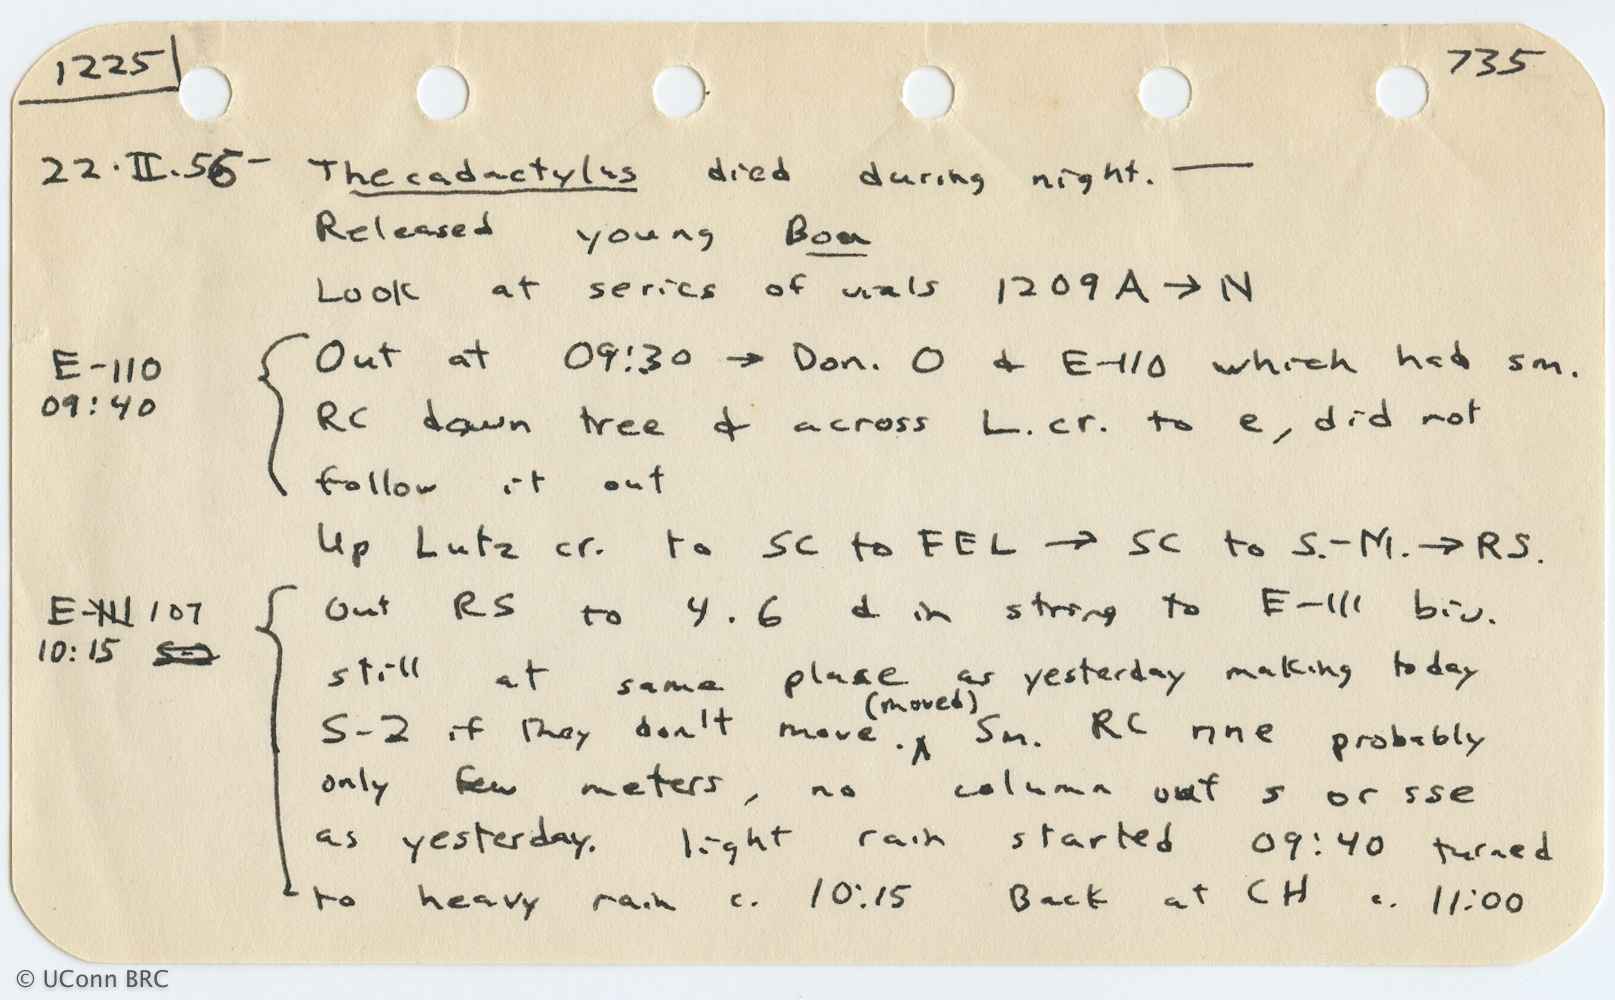 1225
735
22.II.56- Thecadactylus died during night. —
Released young Boa
Look at series of vials 1209A → N
E-110 Out at 09:30 → Don. O & E-110 which had sm.
09:40 RC down tree & across L.cr. to e, did not
follow it out
Up Lutz cr. to SC to FEL → SC to S.-M. → RS.
E-111 107 Out RS to 4.6 & in string to E-111 biv.
10:15 still at same place as yesterday making today
S-2 if they don't move. (moved) Sm. RC nne probably
only few meters, no column out s or sse
as yesterday. light rain started 09:40 turned
to heavy rain c. 10:15 Back at CH c. 11:00
© UConn BRC